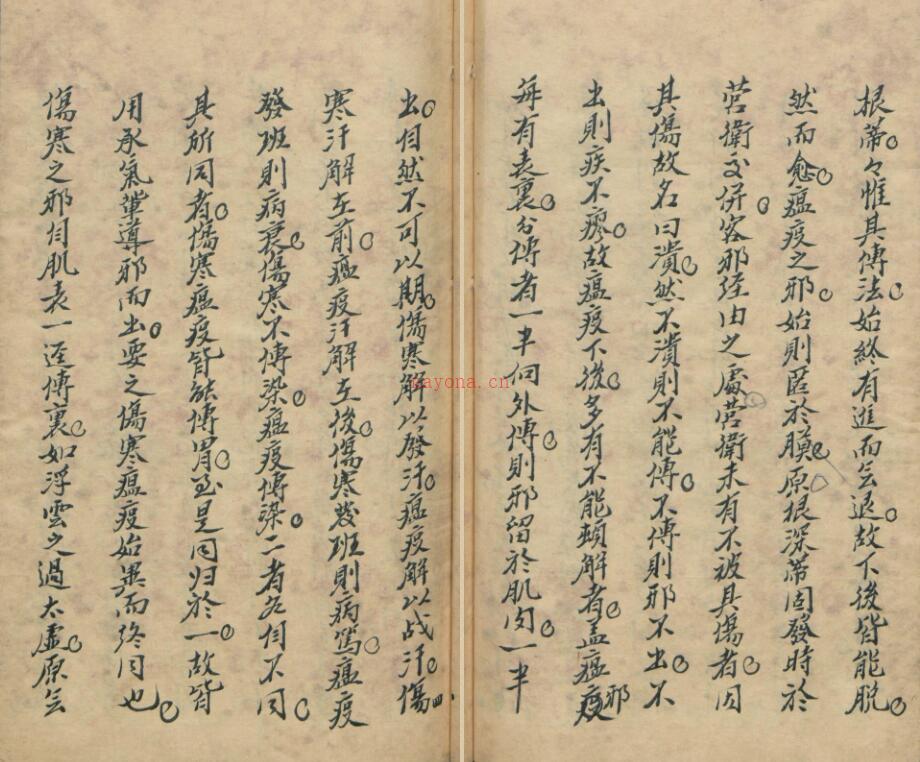 根蒂々惟其傳法始終有進而无退故下後皆能脫
然而愈瘟疫之邪始則匿於膜原根深蒂固發時於
营衛交併客邪经由之處营衛未有不被其傷者因
其傷故名曰潰然不潰則不能傳不傳則邪不出不
出則疾不瘳故瘟疫下後多有不能頓解者盖瘟疫邪
每有表裏分傳者一半向外傳則邪留於肌肉一半
出自然不可以期傷寒解以發汗瘟疫解以战汗傷
四
寒汗解在前瘟疫汗解在後傷寒發班則病篤瘟疫
發班則病衰傷寒不傳染瘟疫傳染二者各自不同
其所同者傷寒瘟疫皆能傳胃至是同归於一故皆
用承氣軰導邪而出要之傷寒瘟疫始異而終同也
傷寒之邪自肌表一逕傳裏如浮雲之過太虛原无
nayona.cn